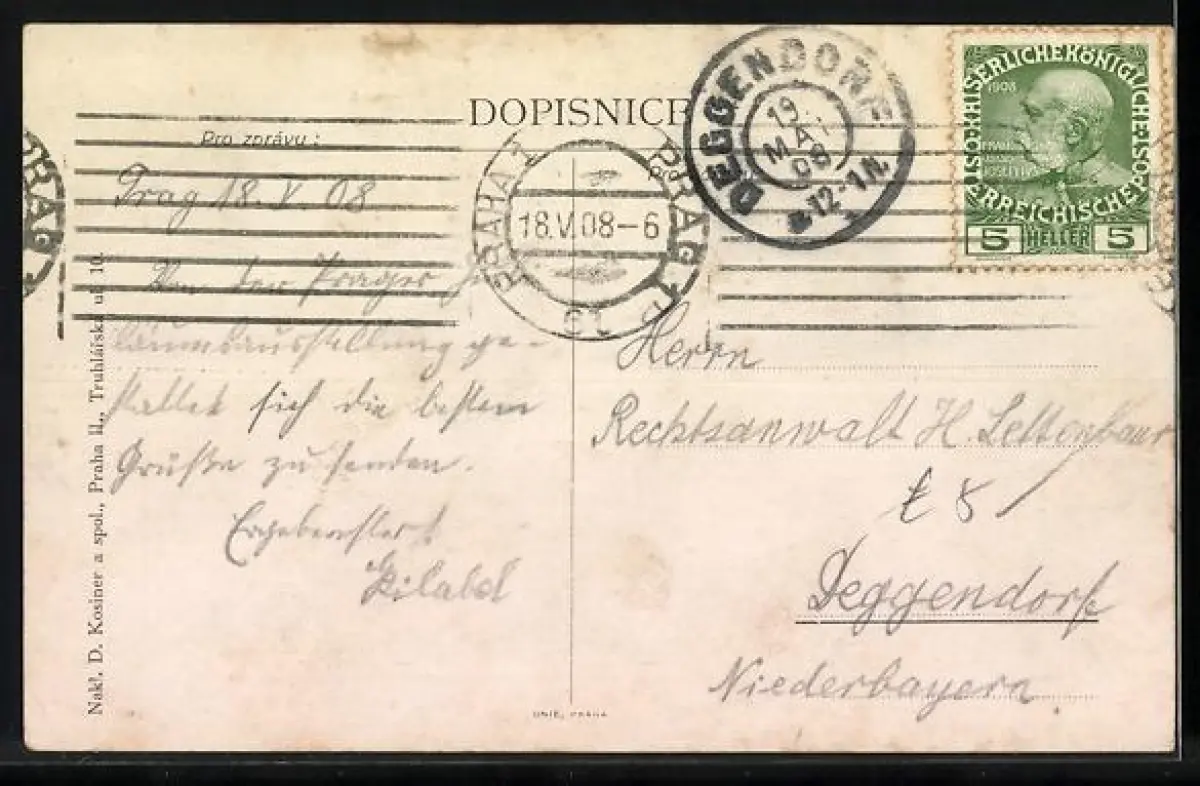 DOPISNICE
Pro zprávu:
Prag 18. V. 08
Von der Prager Ju-
biläumsausstellung ge-
stattet sich die besten
Grüße zu senden.
Ergebenster!
Herrn
Rechtsanwalt H. Lettenbaur
Deggendorf
Niederbayern.
PRAHA 1
18.V.08-6
PRAG 1
DEGGENDORF
19. MAI 08
12-1N.
KAISERLICHEKÖNIGLICHE
ÖSTERREICHISCHEPOST
1908
5 HELLER 5
PRAG
Nakl. D. Kosiner a spol., Praha II., Truhlářská ul. 10.
UNIE, PRAHA